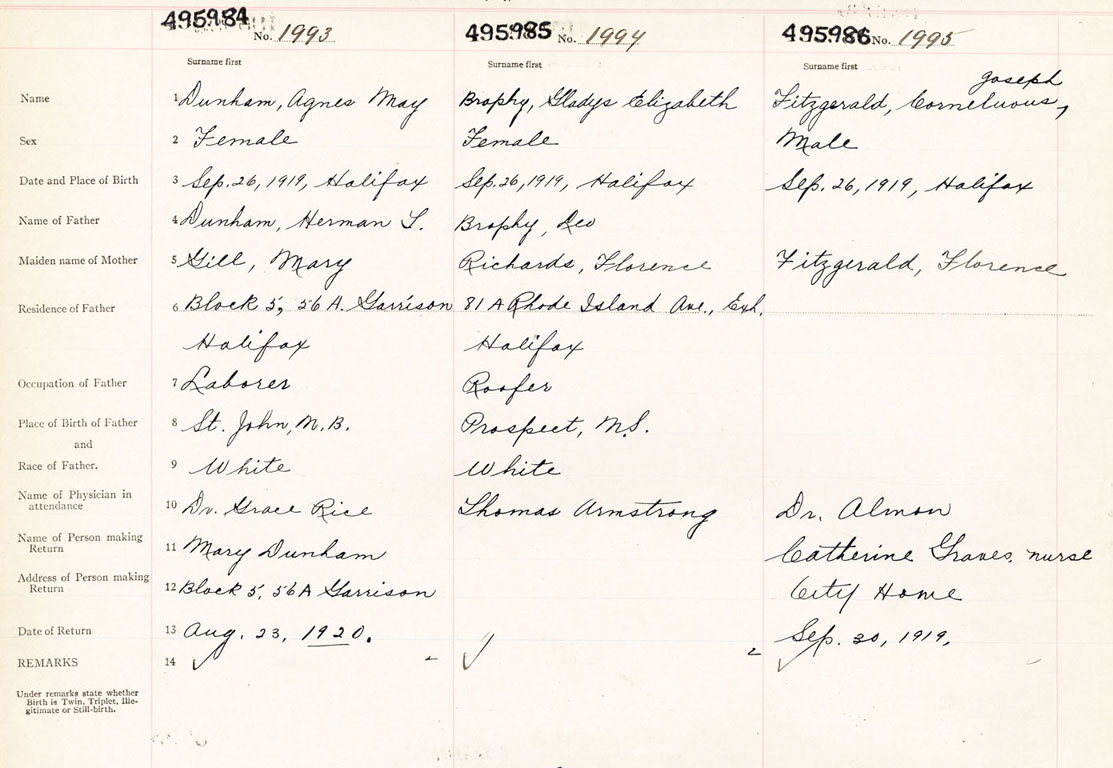 495984 No. 1993 495985 No. 1994 495986 No. 1995
Surname first Surname first Surname first
Joseph
Name 1 Dunham, Agnes May Brophy, Gladys Elizabeth Fitzgerald, Corneluous,
Sex 2 Female Female Male
Date and Place of Birth 3 Sep. 26, 1919, Halifax Sep. 26, 1919, Halifax Sep. 26, 1919, Halifax
Name of Father 4 Dunham, Herman S. Brophy, Leo
Maiden name of Mother 5 Gill, Mary Richards, Florence Fitzgerald, Florence
Residence of Father 6 Block 5, 56 A. Garrison 81 A Rhode Island Ave., Exh.
Halifax Halifax
Occupation of Father 7 Laborer Roofer
Place of Birth of Father 8 St. John, N.B. Prospect, N.S.
and
Race of Father. 9 White White
Name of Physician in
attendance 10 Dr. Grace Rice Thomas Armstrong Dr. Almon
Name of Person making
Return 11 Mary Dunham Catherine Graves, nurse
Address of Person making
Return 12 Block 5, 56 A Garrison City Home
Date of Return 13 Aug. 23, 1920. Sep. 30, 1919,
REMARKS 14 ✓ ✓ 2 ✓
Under remarks state whether
Birth is Twin, Triplet, Ille-
gitimate or Still-birth.